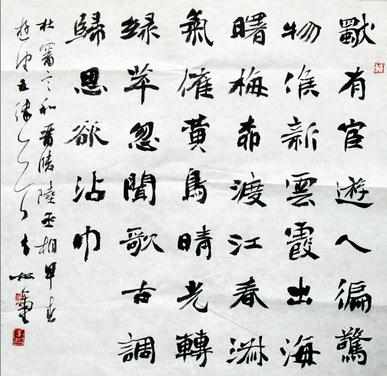 獨有宦遊人偏驚
物候新雲霞出海
曙梅柳渡江春淑
氣催黃鳥晴光轉
綠苹忽聞歌古調
歸思欲沾巾
杜審言和晉陵陸丞相早春
遊望五律